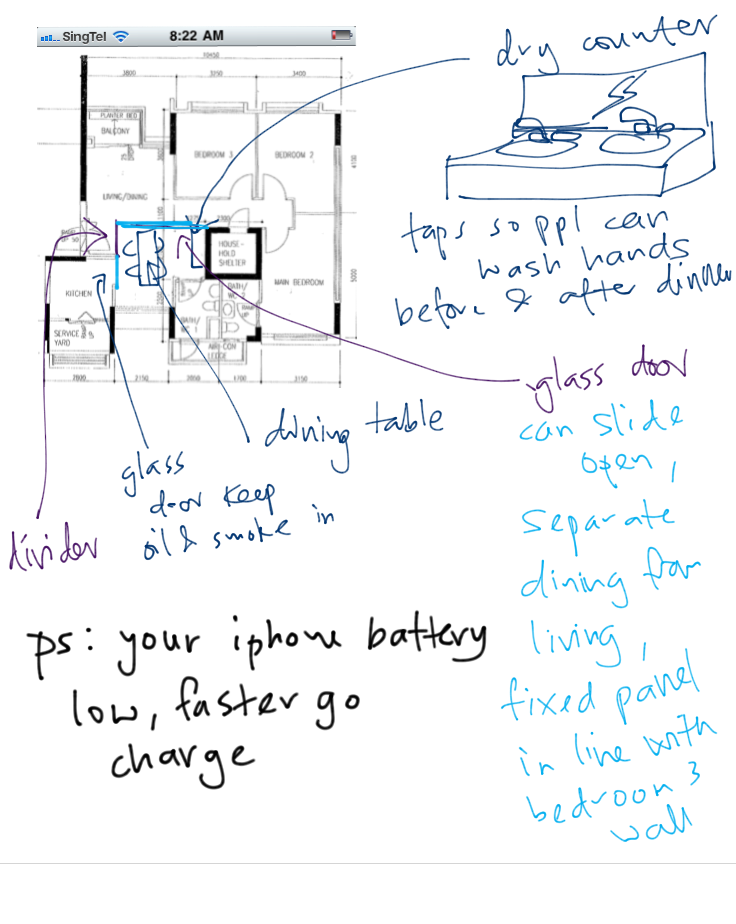 SingTel
8:22 AM
10450
3800
3250
3400
PLANTER BED
BALCONY
BEDROOM 3
BEDROOM 2
4150
LIVING/DINING
HOUSE-
HOLD
SHELTER
KITCHEN
MAIN BEDROOM
5000
BATH/
WC
BATH/
SERVICE
YARD
AIR-CON
LEDGE
2800
3150
1700
3150
dry counter
taps so ppl can
wash hands
before & after dinner
glass door
can slide
open,
separate
dining from
living,
fixed panel
in line with
bedroom 3
wall
dining table
glass
door keep
oil & smoke in
divider
ps: your iphone battery
low, faster go
charge